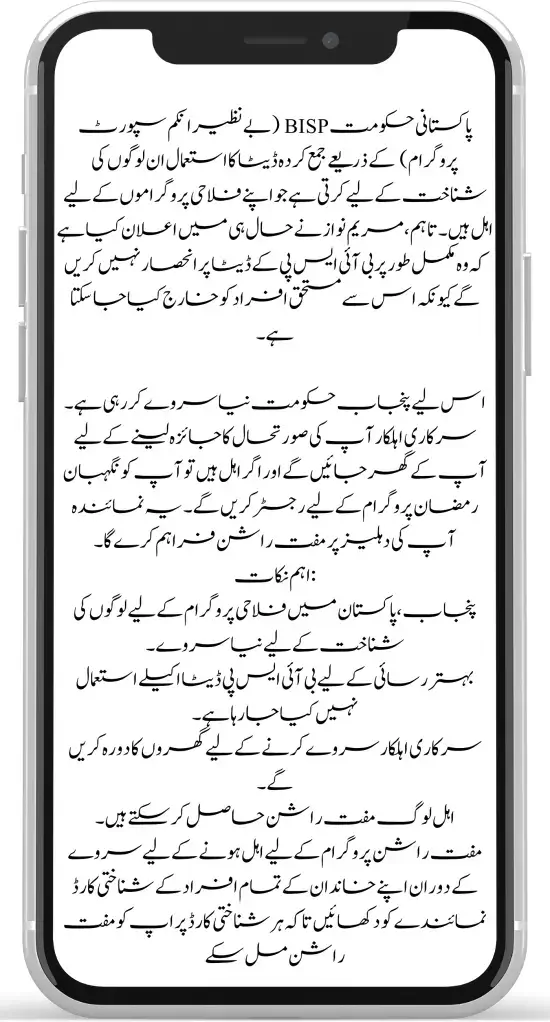 پاکستانی حکومت BISP (بے نظیر انکم سپورٹ
پروگرام) کے ذریعے جمع کردہ ڈیٹا کا استعمال ان لوگوں کی
شناخت کے لیے کرتی ہے جو اپنے فلاحی پروگراموں کے لیے
اہل ہیں۔ تاہم، مریم نواز نے حال ہی میں اعلان کیا ہے
کہ وہ مکمل طور پر بی آئی ایس پی کے ڈیٹا پر انحصار نہیں کریں
گے کیونکہ اس سے مستحق افراد کو خارج کیا جا سکتا
ہے۔
اس لیے پنجاب حکومت نیا سروے کر رہی ہے۔
سرکاری اہلکار آپ کی صورتحال کا جائزہ لینے کے لیے
آپ کے گھر جائیں گے اور اگر اہل ہیں تو آپ کو نگہبان
رمضان پروگرام کے لیے رجسٹر کریں گے۔ یہ نمائندہ
آپ کی دہلیز پر مفت راشن فراہم کرے گا۔
:اہم نکات
پنجاب، پاکستان میں فلاحی پروگرام کے لیے لوگوں کی
شناخت کے لیے نیا سروے۔
بہتر رسائی کے لیے بی آئی ایس پی ڈیٹا اکیلے استعمال
نہیں کیا جا رہا ہے۔
سرکاری اہلکار سروے کرنے کے لیے گھروں کا دورہ کریں
گے۔
اہل لوگ مفت راشن حاصل کر سکتے ہیں۔
مفت راشن پروگرام کے لیے اہل ہونے کے لیے سروے
کے دوران اپنے خاندان کے تمام افراد کے شناختی کارڈ
نمائندے کو دکھائیں تاکہ ہر شناختی کارڈ پر اپ کو مفت
راشن مل سکے